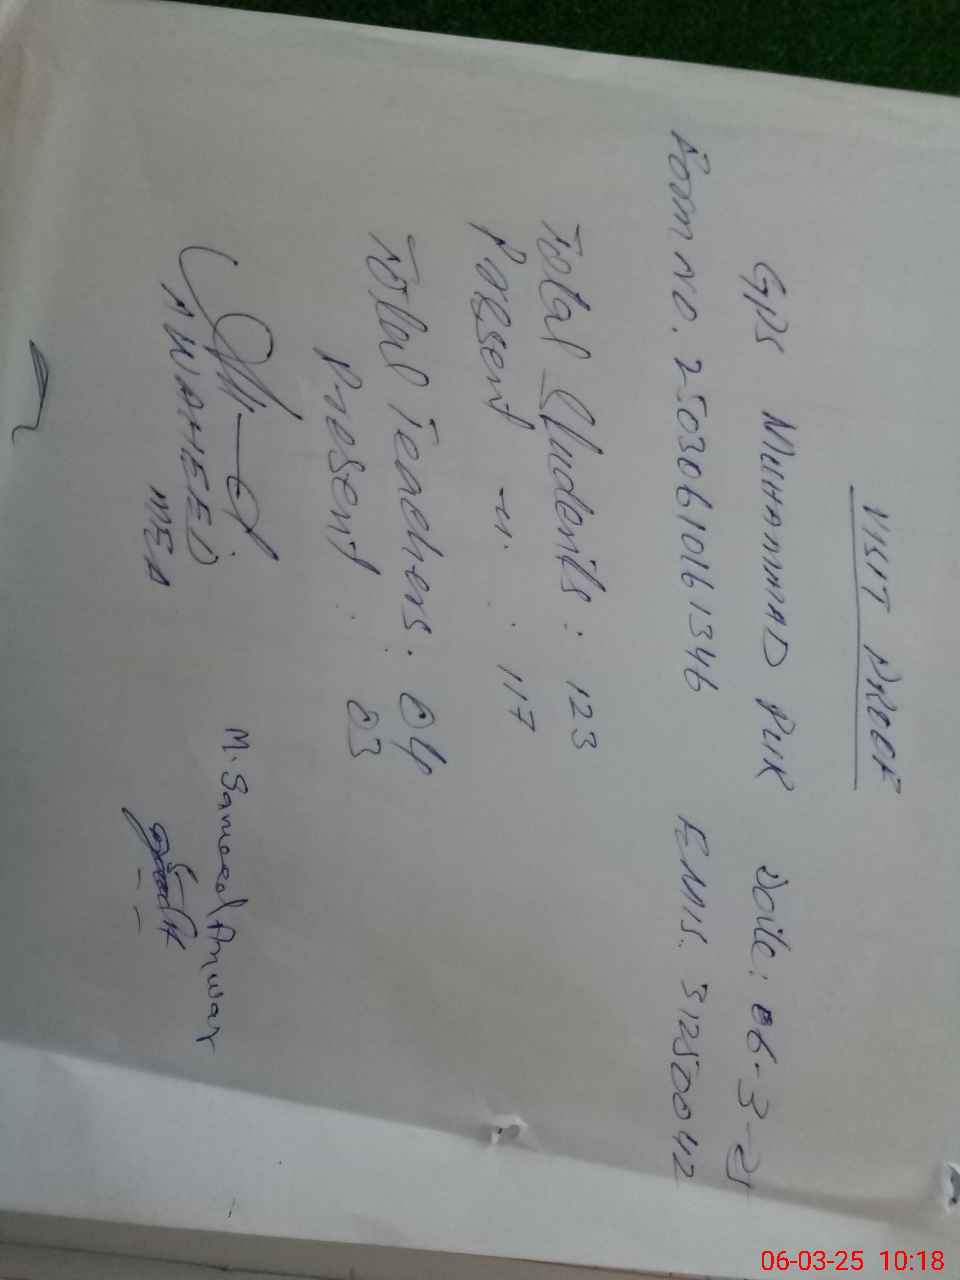 VISIT PROOF
GPS MUHAMMAD PUR Date: 06-3-25
Form No. 25030610161346 EMIS. 31250042
Total Students : 123
Present -"- . 117
Total Teachers . 04
Present . 03
A WAHEED
MEA
M. Sameed Anwar
06-03-25 10:18